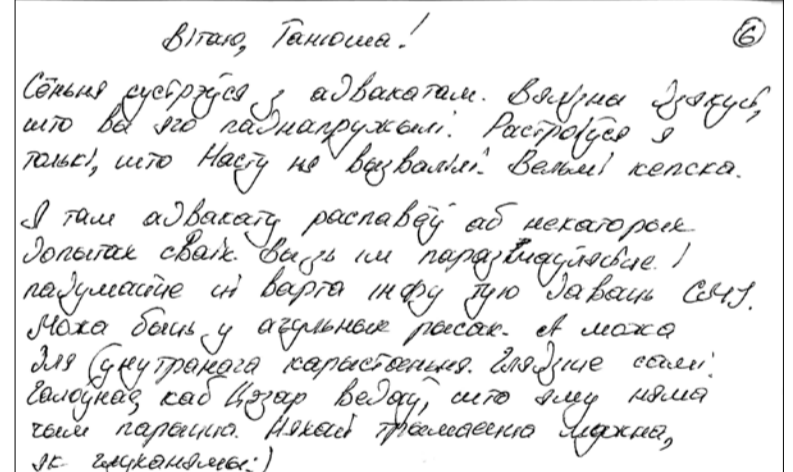 Вітаю, Танюша!
6
Сёньня сустрэўся з адвакатам. Вялізны дзякуй,
што вы яго паднапружылі. Растроіўся я
толькі, што Насту не вызвалілі. Вельмі кепска.
Я там адвакату распавёў аб некаторых
допытах сваіх. Вы зь ім паразмаўляйце. І
падумайце ці варта інфу тую даваць СМІ.
Можа быць у агульных рысах. А можа
для ўнутранага карыстаньня. Глядзіце самі.
Галоўнае, каб Цэзар ведаў, што яму няма
чым парыцца. Няхай трымаецца мужна,
як :)